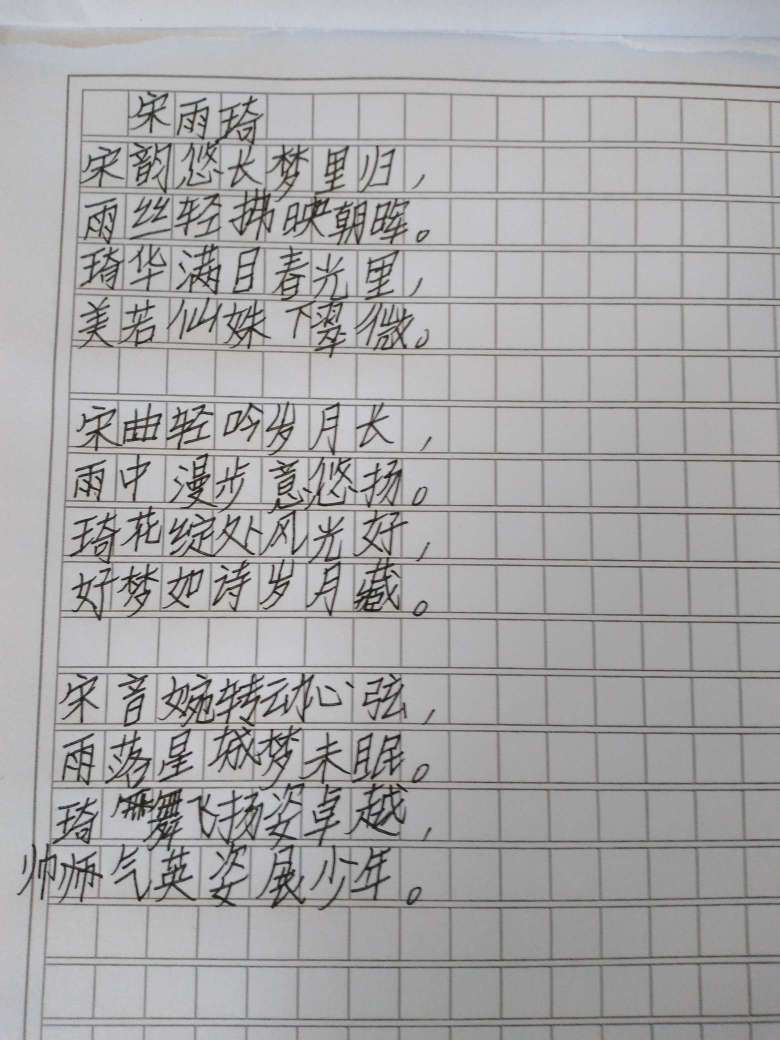 宋雨琦
宋韵悠长梦里归，
雨丝轻拂映朝晖。
琦华满目春光里，
美若仙姝下翠微。
宋曲轻吟岁月长，
雨中漫步意悠扬。
琦花绽处风光好，
好梦如诗岁月藏。
宋音婉转动心弦，
雨落星城梦未眠。
琦舞飞扬姿卓越，
帅气英姿展少年。